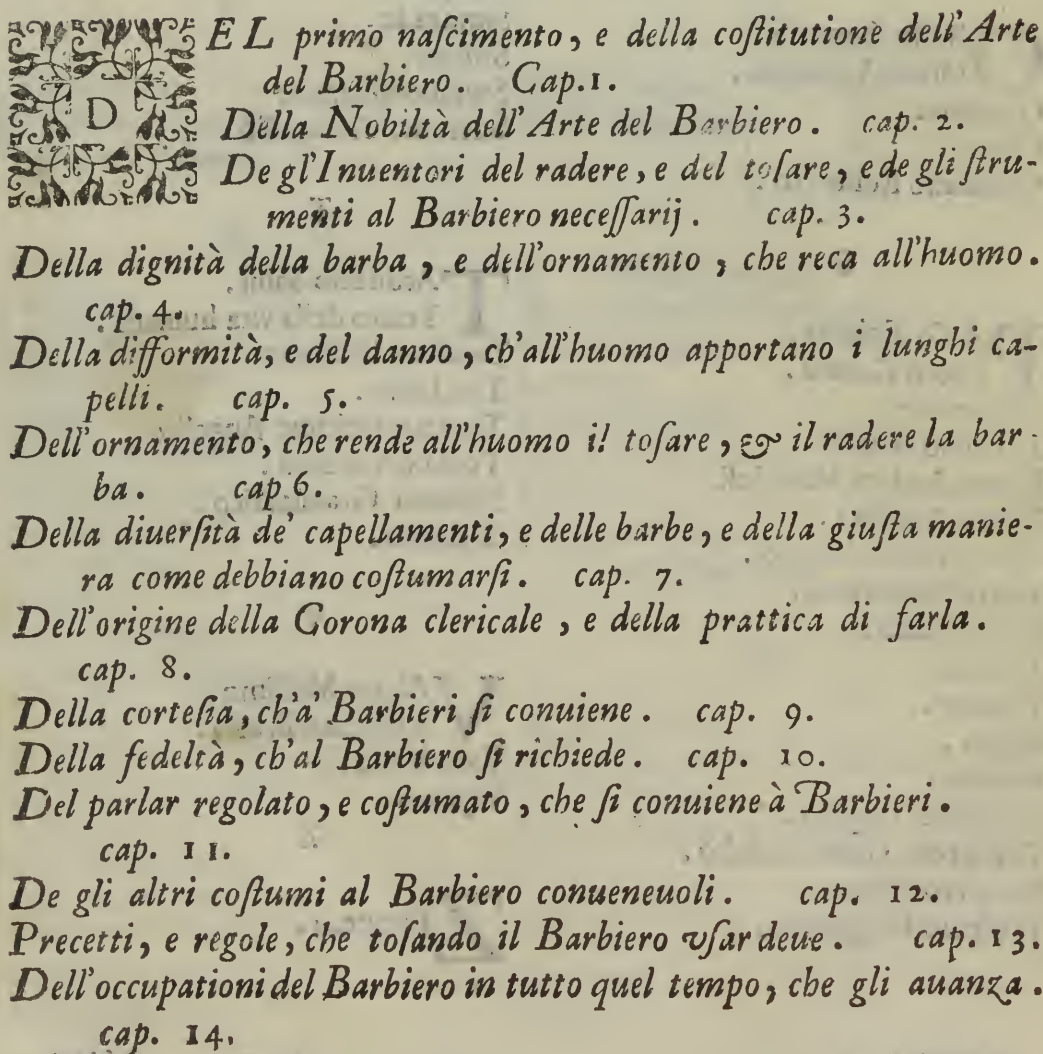 DEL primo naſcimento, e della coſtitutione dell'Arte
del Barbiero. Cap.1.
Della Nobiltà dell'Arte del Barbiero. cap. 2.
De gl'Inuentori del radere, e del toſare, e de gli ſtru-
menti al Barbiero neceſſarij. cap. 3.
Della dignità della barba, e dell'ornamento, che reca all'huomo.
cap. 4.
Della difformità, e del danno, ch'all'huomo apportano i lunghi ca-
pelli. cap. 5.
Dell'ornamento, che rende all'huomo il toſare, & il radere la bar-
ba. cap.6.
Della diuerſità de' capellamenti, e delle barbe, e della giuſta manie-
ra come debbiano coſtumarſi. cap. 7.
Dell'origine della Corona clericale, e della prattica di farla.
cap. 8.
Della corteſia, ch'a' Barbieri ſi conuiene. cap. 9.
Della fedeltà, ch'al Barbiero ſi richiede. cap. 10.
Del parlar regolato, e coſtumato, che ſi conuiene à Barbieri.
cap. 11.
De gli altri coſtumi al Barbiero conueneuoli. cap. 12.
Precetti, e regole, che toſando il Barbiero vſar deue. cap. 13.
Dell'occupationi del Barbiero in tutto quel tempo, che gli auanza.
cap. 14.